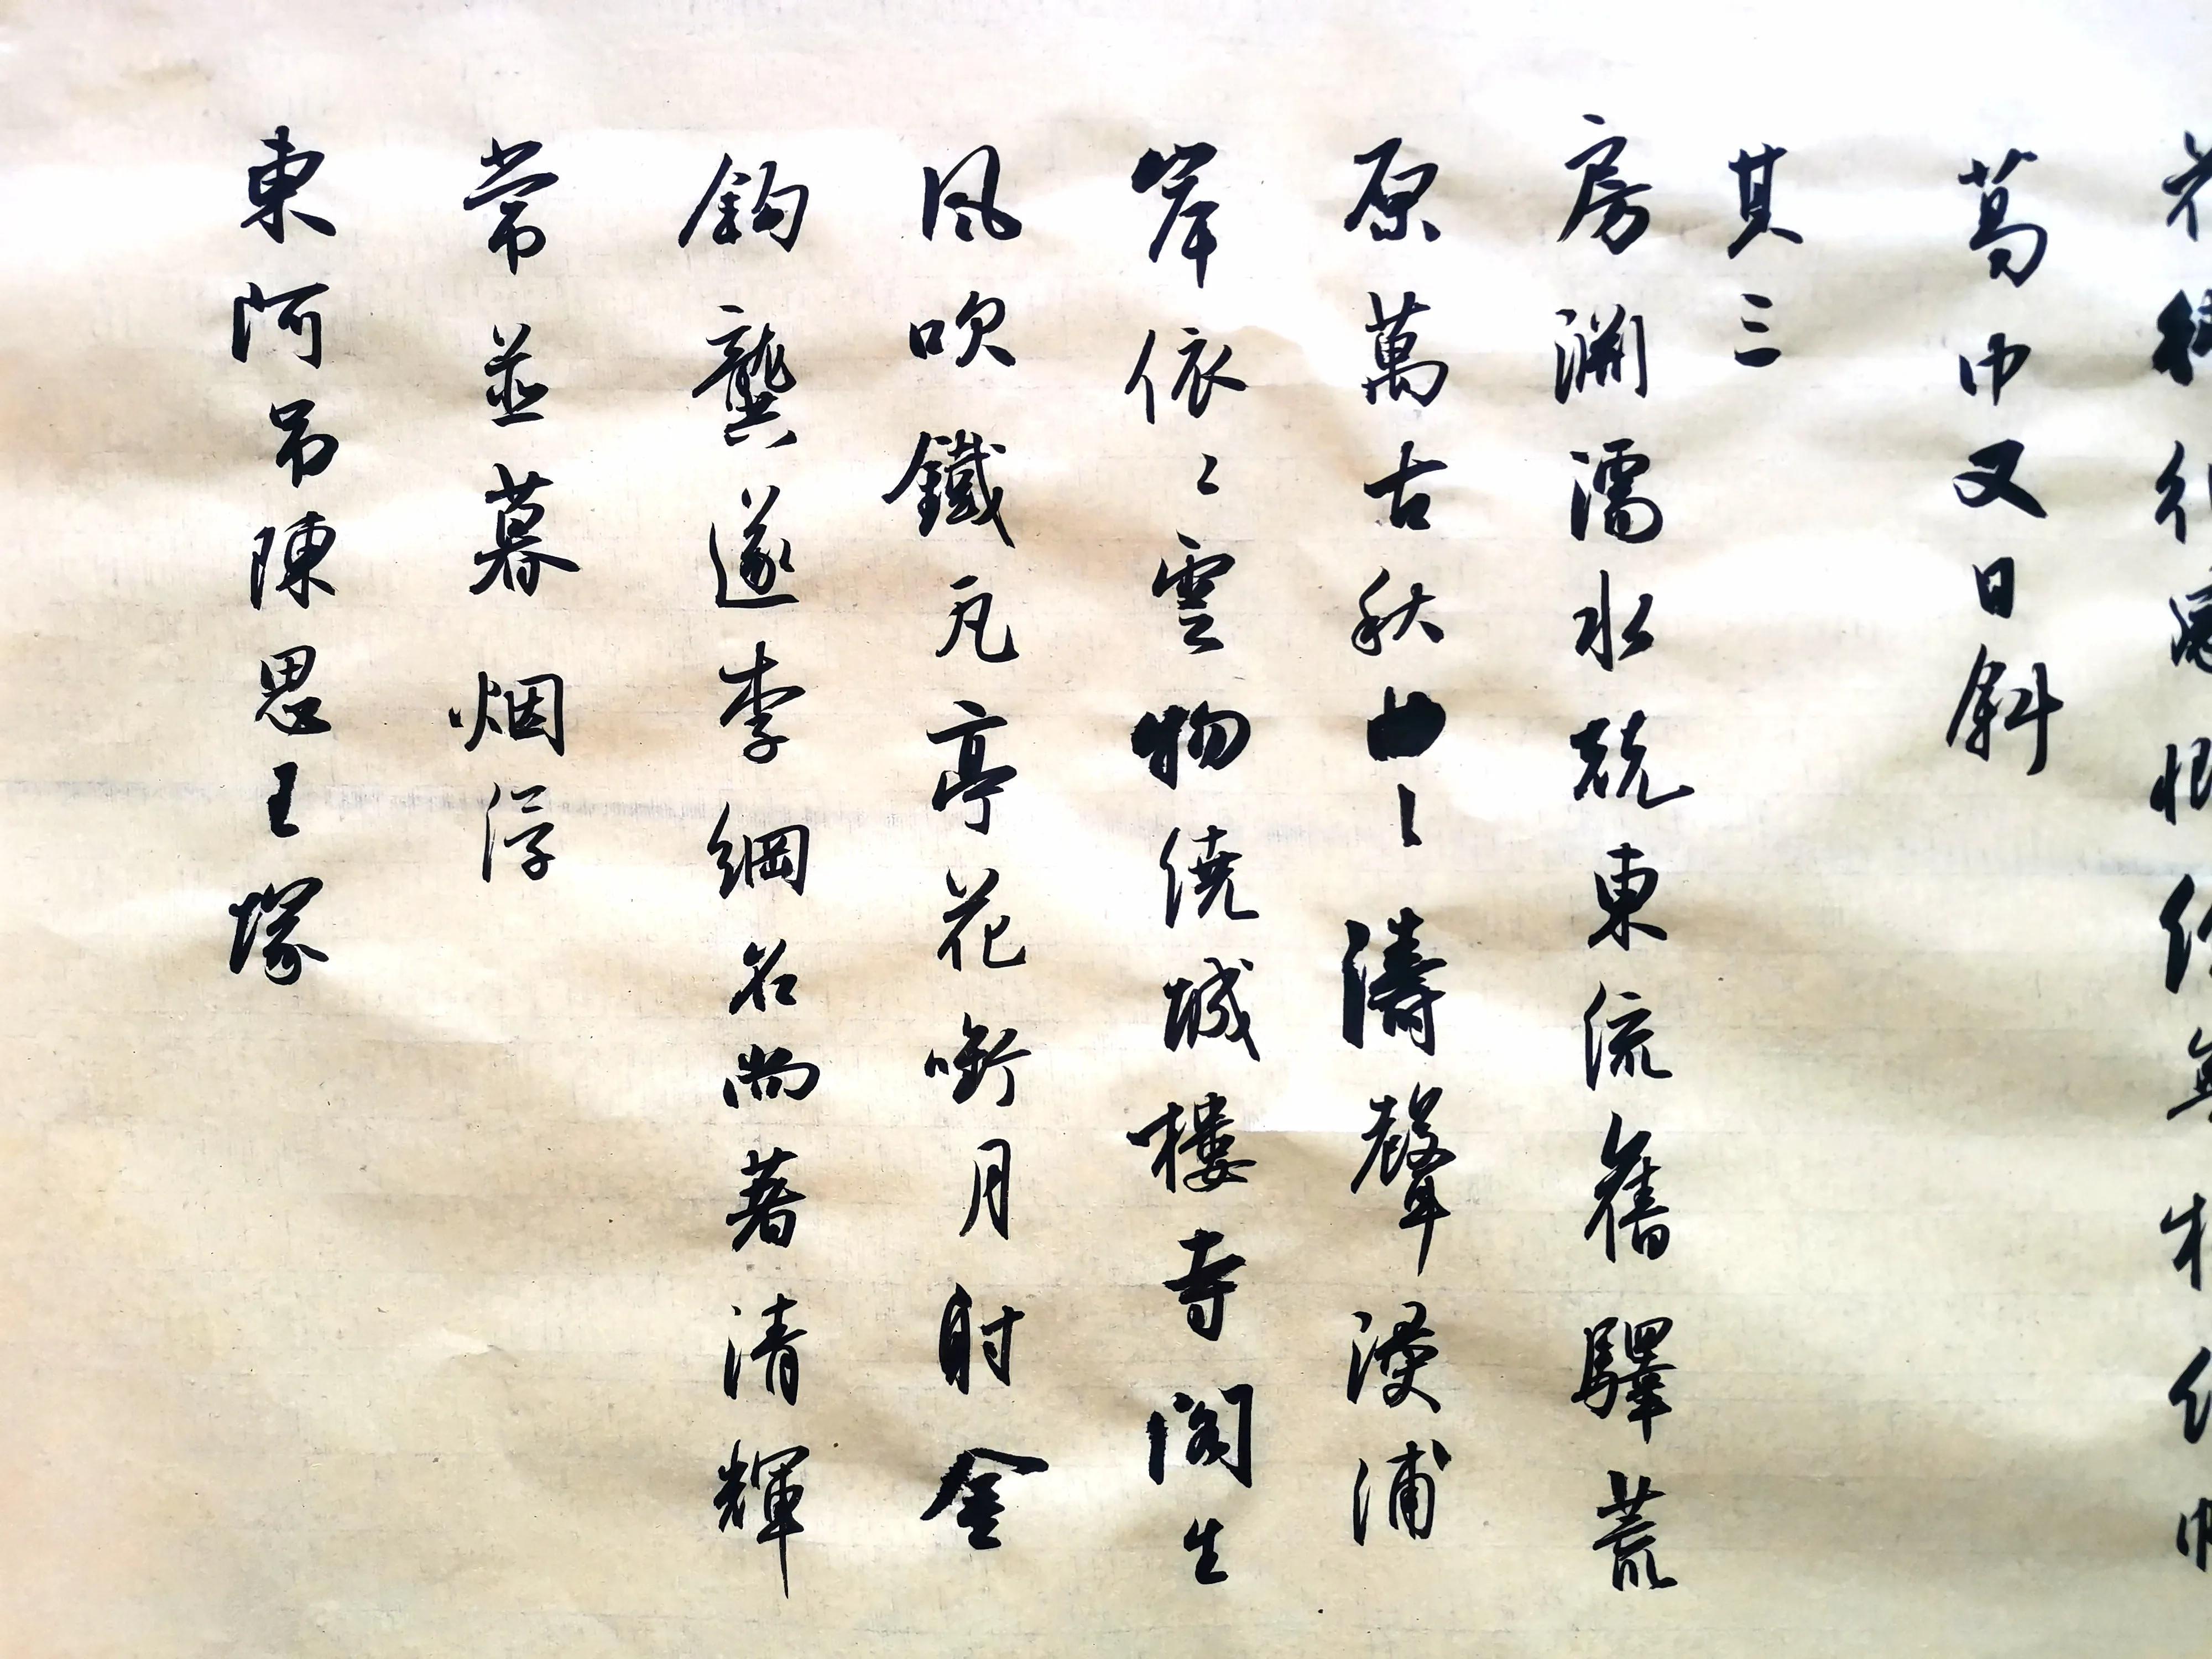 葛巾又日斜
其三
房淵濡水競東流舊驛荒
原萬古秋曲〻濤聲漫浦
岸依〻雲物繞城樓寺閣生
風吹鐵瓦亭花銜月射金
鈎龔遂李綱名尚著清輝
常並暮烟浮
東阿吊陳思王塚